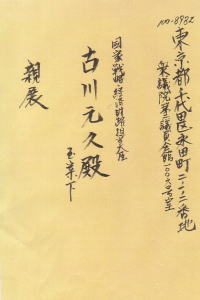 100-8982
東京都千代田区永田町二-二-二番地
衆議院第二議員会館一〇〇六号室
国家戦略・経済財政担当大臣
古川元久殿
玉案下
親展